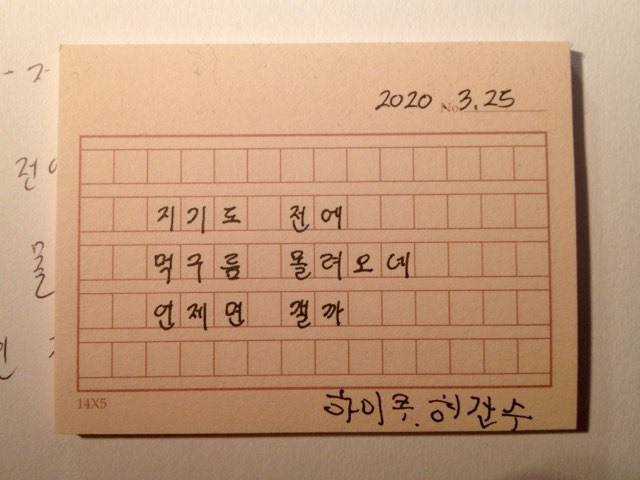 2020 No. 3.25
지기도 전에
먹구름 몰려오네
언제면 갤까
14X5
하이쿠. 허간수